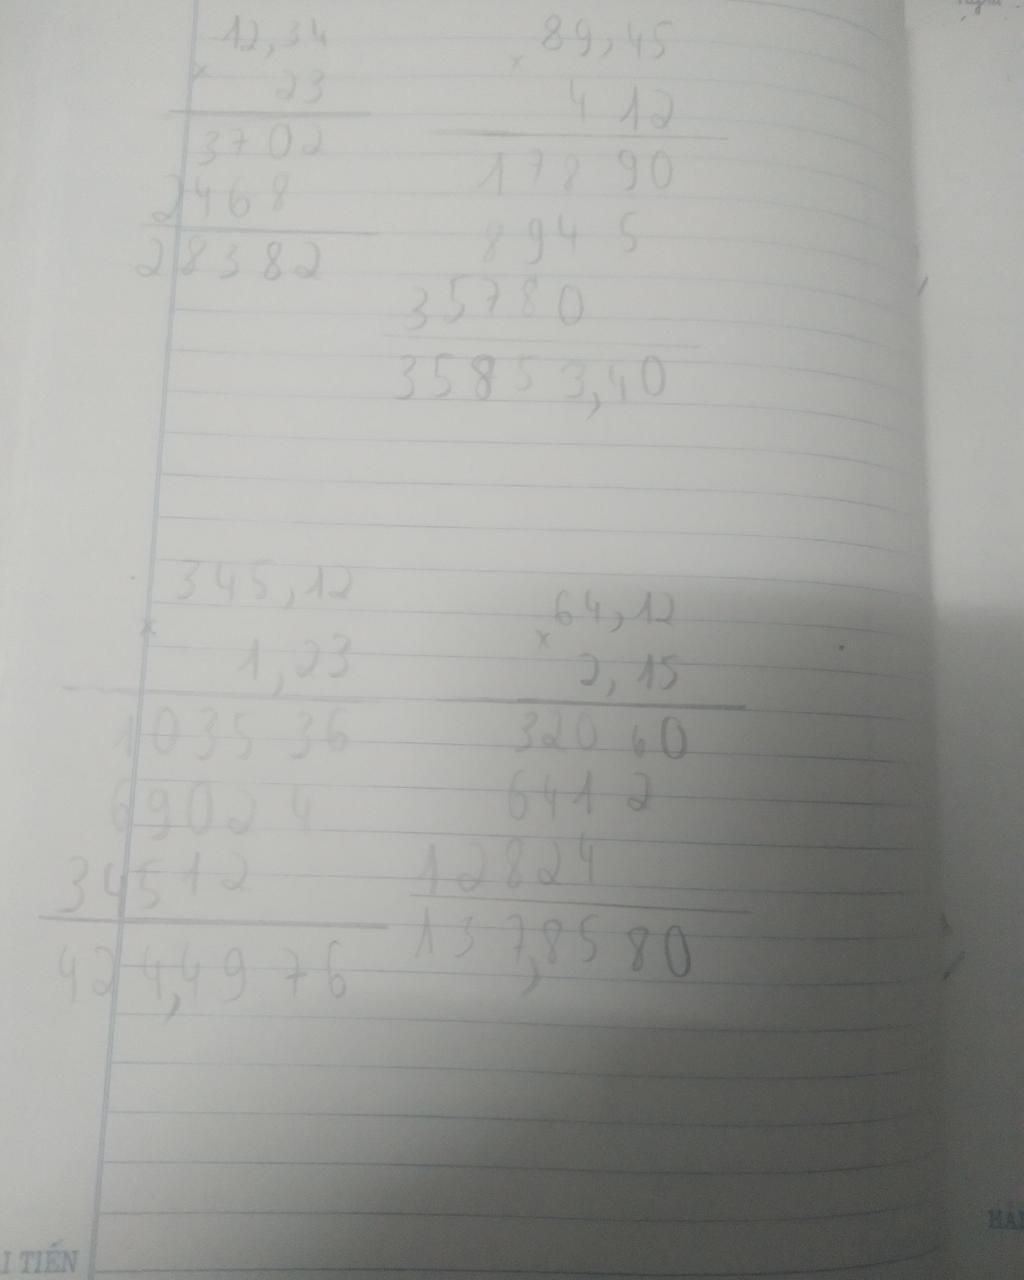 12,34
×
23
3702
2468
28382
89,45
×
412
17890
8945
35780
35853,40
345,12
×
1,23
103536
69024
34512
424,4976
64,12
×
2,15
32060
6412
12824
137,8580
I TIẾN
HẢI